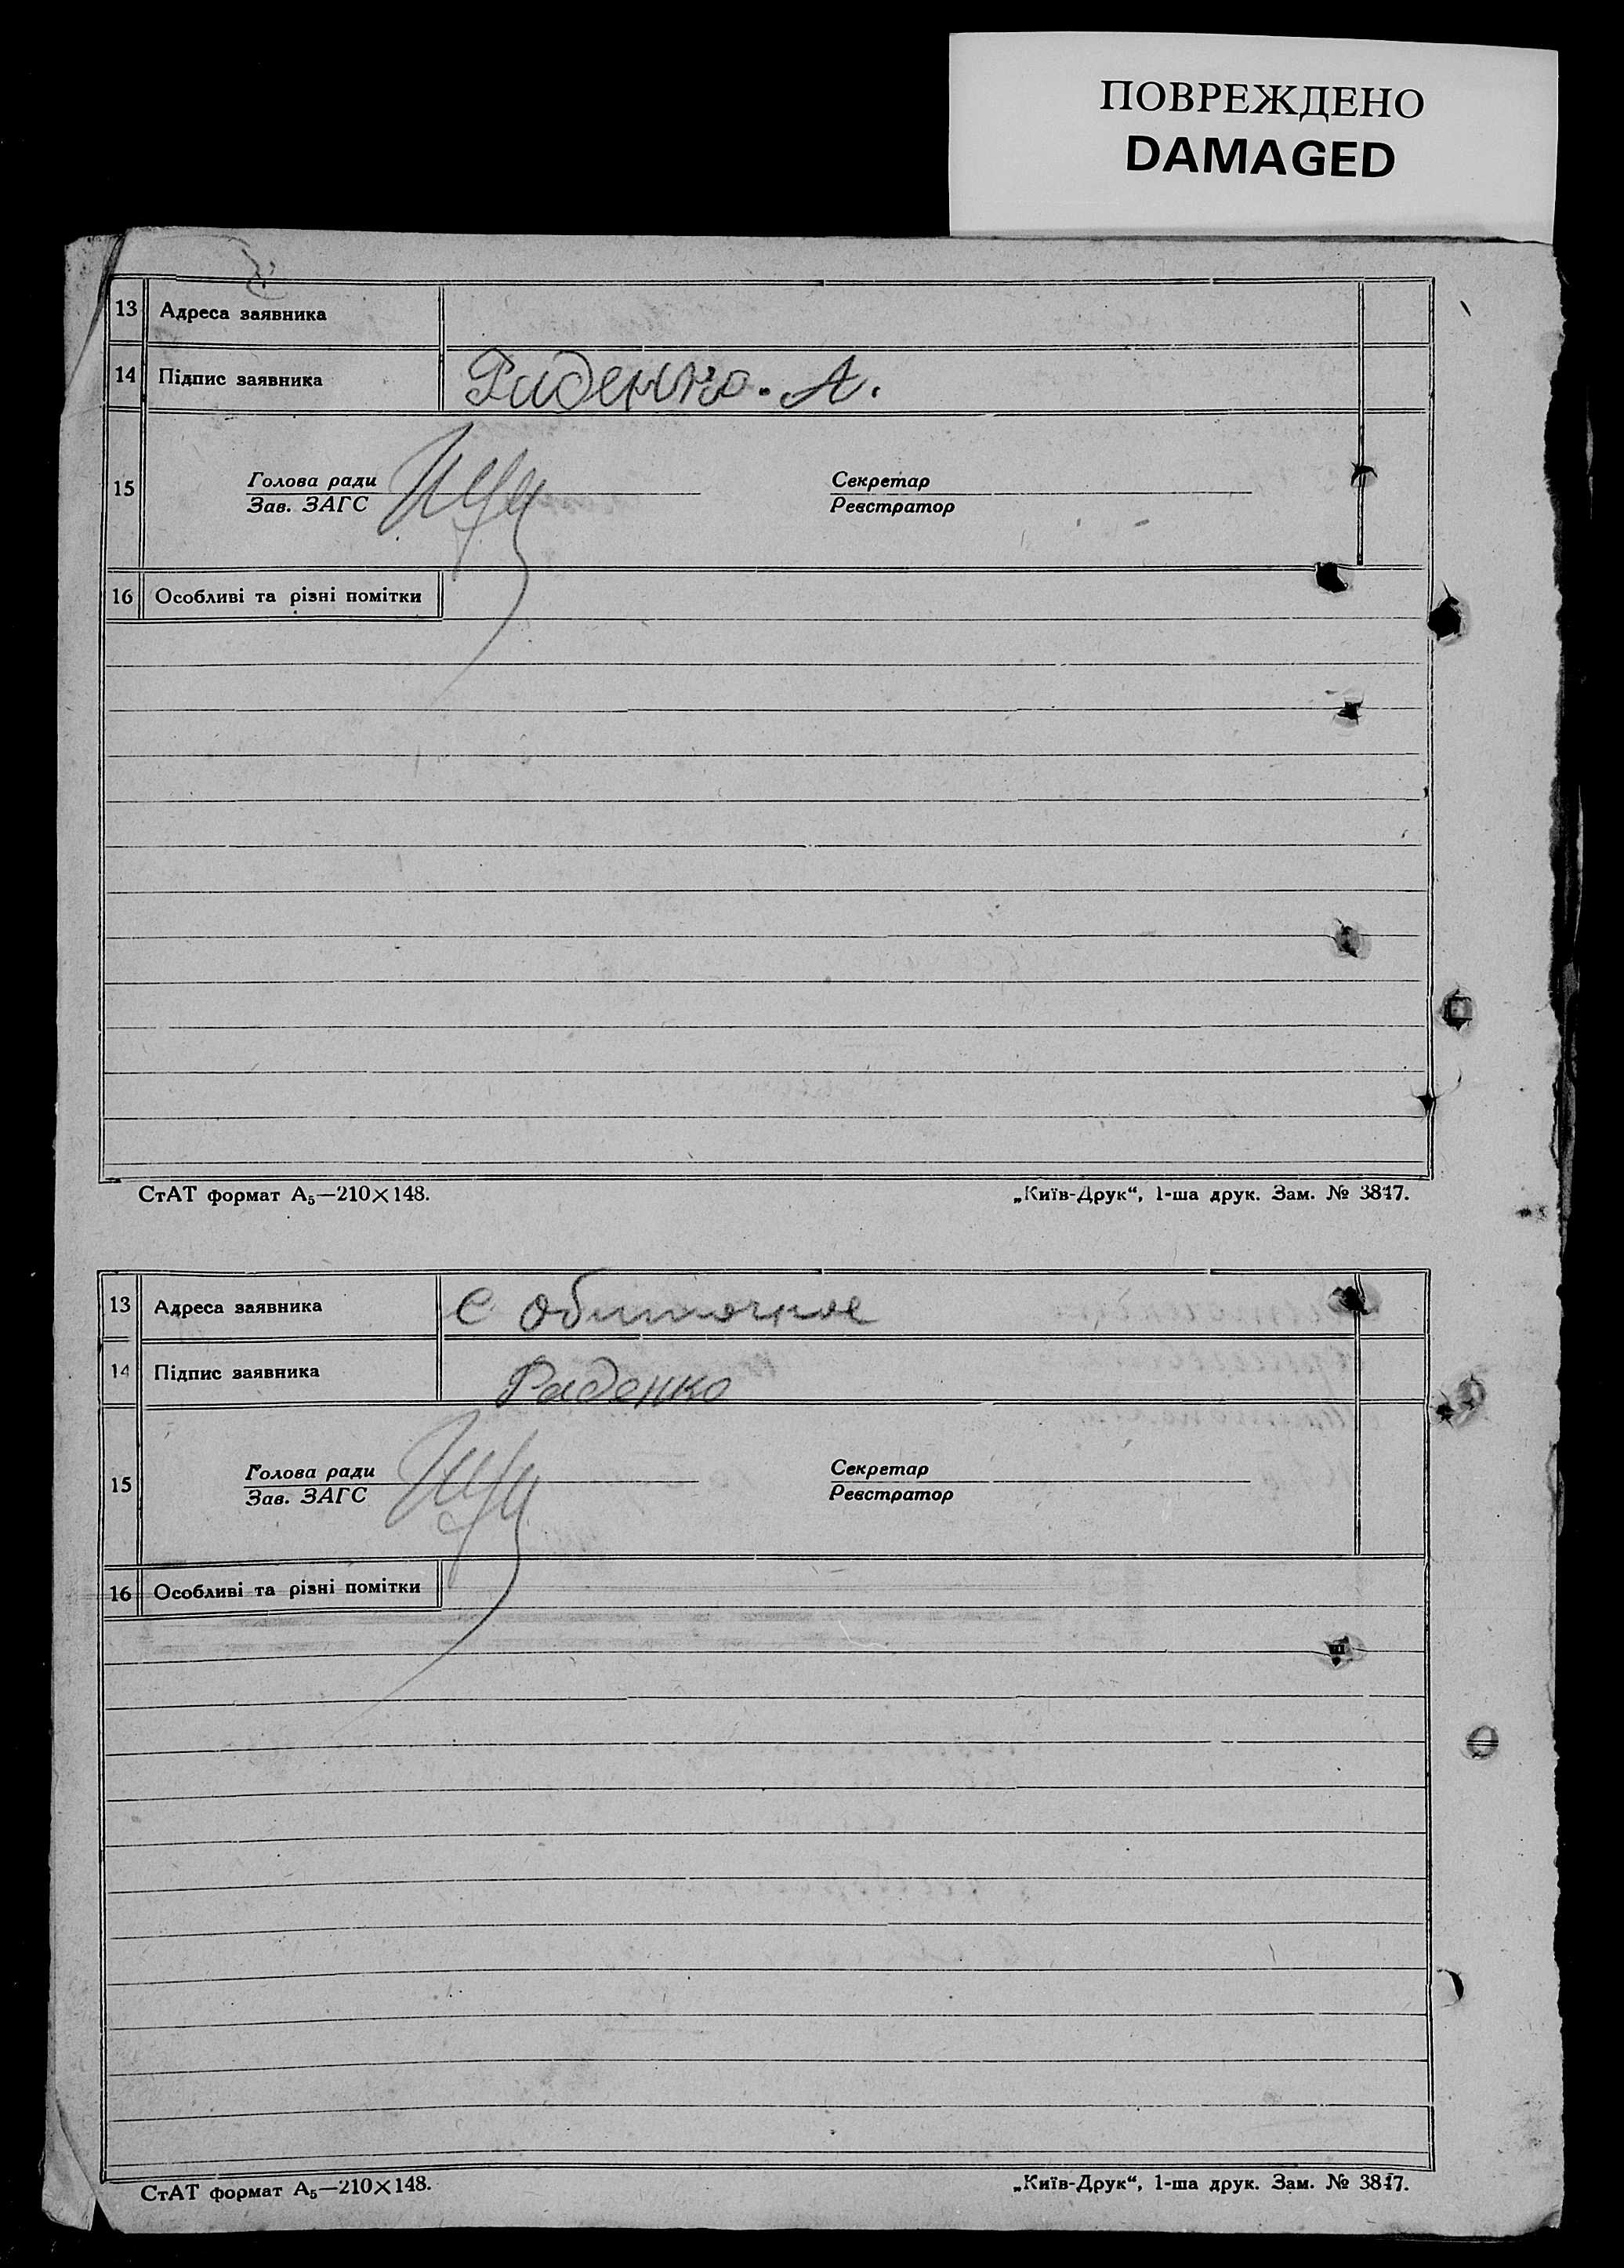 ПОВРЕЖДЕНО
DAMAGED
13 Адреса заявника
14 Підпис заявника Раденко. А.
15 Голова ради Секретар
Зав. ЗАГС Реєстратор
16 Особливі та різні помітки
СтАТ формат А₅—210×148. „Київ-Друк“, 1-ша друк. Зам. № 3847.
13 Адреса заявника с Обиточное
14 Підпис заявника Раденко
15 Голова ради Секретар
Зав. ЗАГС Реєстратор
16 Особливі та різні помітки
СтАТ формат А₅—210×148. „Київ-Друк“, 1-ша друк. Зам. № 3847.